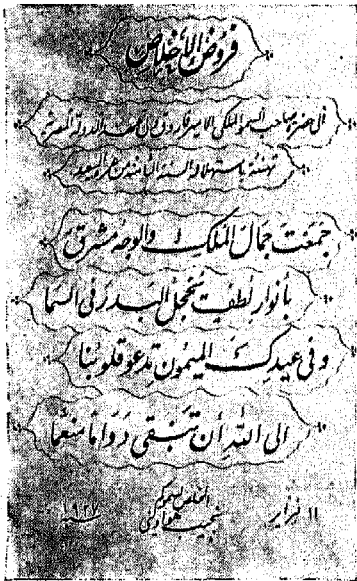 فروض الإخلاص
الى حضرة صاحب السمو الملكي الامير فاروق ولي عهد الدولة المصرية
تهنئة باستهلاله السنة الثامنة من عمره السعيد
جمعت جمال الملك والوجه مشرق
بأنوار لطف تخجل البدر في السما
وفي عيدك الميمون تدعو قلوبنا
الى الله أن تبقى دواما منعما
المخلص لسموكم
١١ فبراير سنة ١٩٢٧
نجيب هواويني